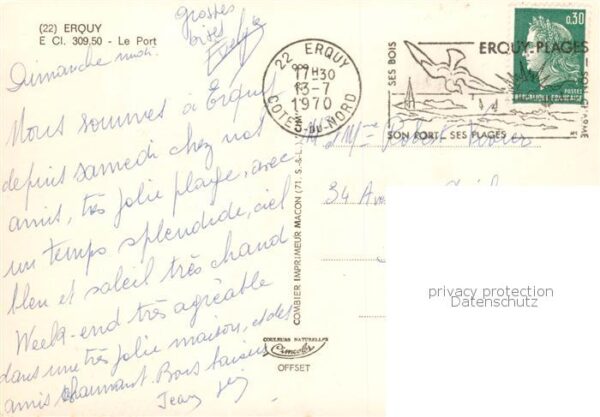 (22) ERQUY
E Cl. 309.50 - Le Port
grosses
bises
Dimanche midi.
Nous sommes à Erquy
depuis samedi chez nos
amis, très jolie plage, avec
un temps splendide, ciel
bleu et soleil très chaud
Week-end très agréable
dans une très jolie maison, et des
amis charmant. Bons baisers
Jean
22 ERQUY
17H30
13-7
1970
COTES-DU-NORD
SES BOIS
ERQUY-PLAGES
SON PORT - SES PLAGES
0,30
POSTES
REPUBLIQUE FRANÇAISE
M et Mme Robert
34 Av
COMBIER IMPRIMEUR MACON (71. S.-&-L.)
COULEURS NATURELLES
Cimcolor
OFFSET
privacy protection
Datenschutz